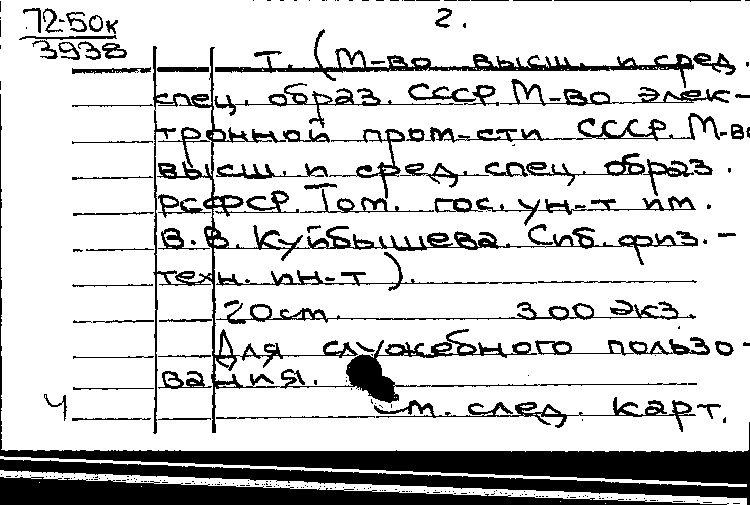 72-50к 2.
3938
Т. (М-во высш. и сред.
спец. образ. СССР. М-во элек-
тронной пром-сти СССР. М-во
высш. и сред. спец. образ.
РСФСР. Том. гос. ун-т им.
В. В. Куйбышева. Сиб. физ.-
техн. ин-т).
20 см. 300 экз.
Для служебного пользо-
вания.
Ч см. след. карт.